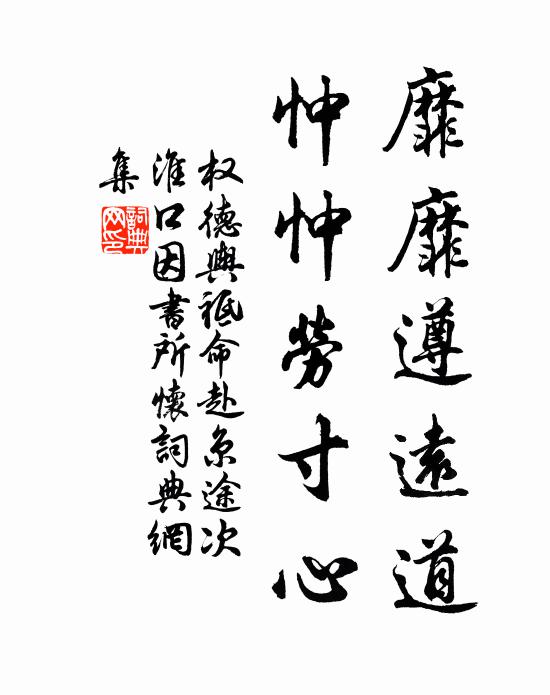 靡靡遵遠道
忡忡勞寸心
权德輿祗命赴京途次
淮口因書所懷詞典網
集
詞典網印